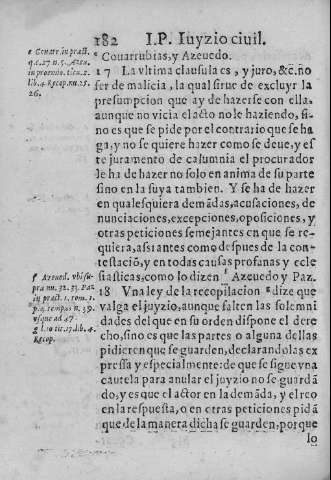 182 I.P. Iuyzio ciuil.
e Couar. in pract.
q.c.27 n.5. Azeu.
in proemio. titu. 2.
lib. 4. Recop. nu. 25.
26.
Couarrubias, y Azeuedo.
17 La vltima clausula es, y juro, &c. ño
ser de malicia, la qual sirue de excluyr la
presumpcion que ay de hazerse con ella,
aunque no vicia el acto no le haziendo, si-
no es que se pide por el contrario que se ha
ga, y no se quiere hazer como se deue, y es
te juramento de calumnia el procurador
le ha de hazer no solo en anima de su parte
sino en la suya tambien. Y se ha de hazer
en qualesquiera demãdas, acusaciones, de
nunciaciones, excepciones, oposiciones, y
otras peticiones semejantes en que se re-
quiera, assi antes como despues de la con-
testaciõ, y en todas causas profanas y ecle
siasticas, como lo dizen f Azeuedo y Paz.
f Azeued. vbi su-
pra nu. 32. 33. Paz
in pract. 1. tom. 1.
p. 4. tempus n. 39.
vsque ad 47.
g l. 10 tit. 17. lib. 4.
Recop.
18 Vna ley de la recopilacion g dize que
valga el juyzio, aunque falten las solemni
dades del que en su orden dispone el dere
cho, sino es que las partes o alguna dellas
pidieren que se guarden, declarandolas ex
pressa y especialmente: de que se sigue vna
cautela para anular el juyzio no se guardã
do, y es que el actor en la demãda, y el reo
en la respuesta, o en otras peticiones pidã
que de la manera dicha se guarden, porque
lo